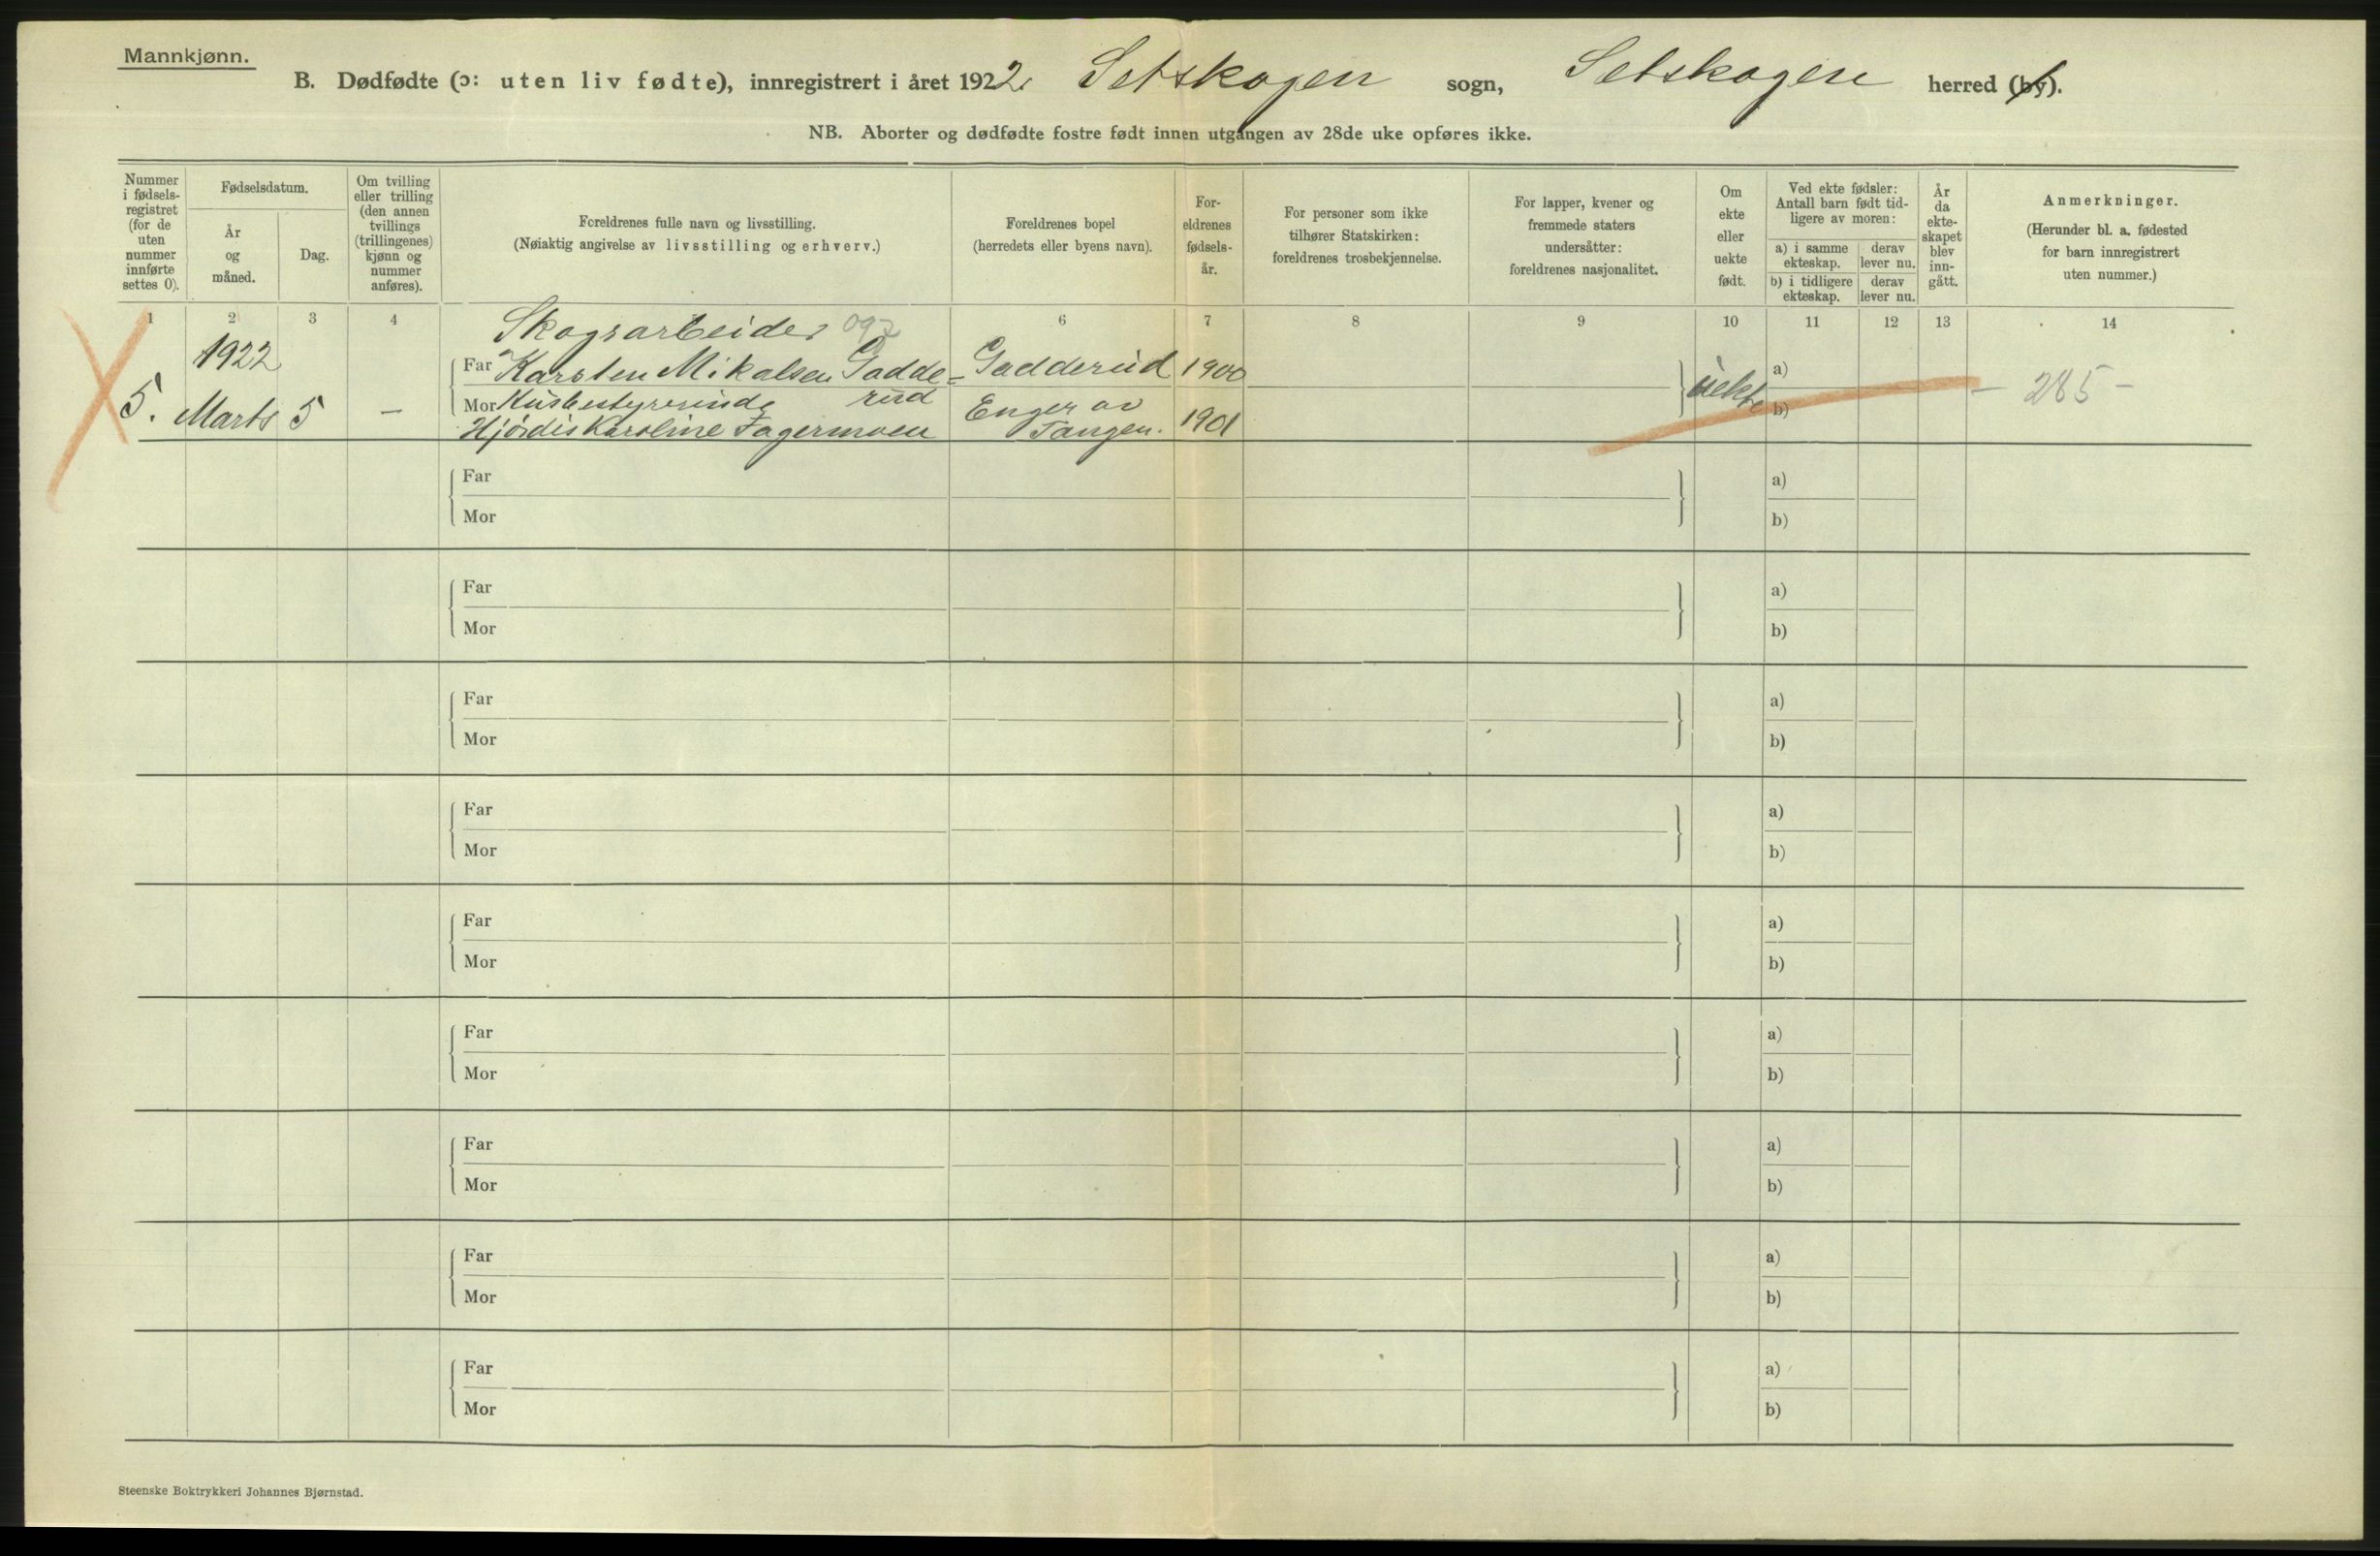 Mannkjønn.
B. Dødfødte (ɔ: uten liv fødte), innregistrert i året 1922. Setskogen sogn, Setskogen herred (by).
NB. Aborter og dødfødte fostre født innen utgangen av 28de uke opføres ikke.
Nummer i fødsels-registret (for de uten nummer innførte settes 0).
Fødselsdatum.
År og måned.
Dag.
Om tvilling eller trilling (den annen tvillings (trillingenes) kjønn og nummer anføres).
Foreldrenes fulle navn og livsstilling.
(Nøiaktig angivelse av livsstilling og erhverv.)
Foreldrenes bopel
(herredets eller byens navn).
For-eldrenes fødsels-år.
For personer som ikke tilhører Statskirken: foreldrenes trosbekjennelse.
For lapper, kvener og fremmede staters undersåtter: foreldrenes nasjonalitet.
Om ekte eller uekte født.
Ved ekte fødsler: Antall barn født tid-ligere av moren:
a) i samme ekteskap.
derav lever nu.
b) i tidligere ekteskap.
derav lever nu.
År da ekte-skapet blev inn-gått.
Anmerkninger.
(Herunder bl. a. fødested for barn innregistrert uten nummer.)
1 2 3 4 6 7 8 9 10 11 12 13 14
Skogsarbeider 097
1922
Far Karsten Mikalsen Gadde- Gadderud 1900 a)
5. Marts 5 – Mor Husbestyrerinde rud Enger av uekte b) – 285 –
Hjørdis Karoline Fagermoen Tangen. 1901
Far a)
Mor b)
Far a)
Mor b)
Far a)
Mor b)
Far a)
Mor b)
Far a)
Mor b)
Far a)
Mor b)
Far a)
Mor b)
Far a)
Mor b)
Far a)
Mor b)
Steenske Boktrykkeri Johannes Bjørnstad.